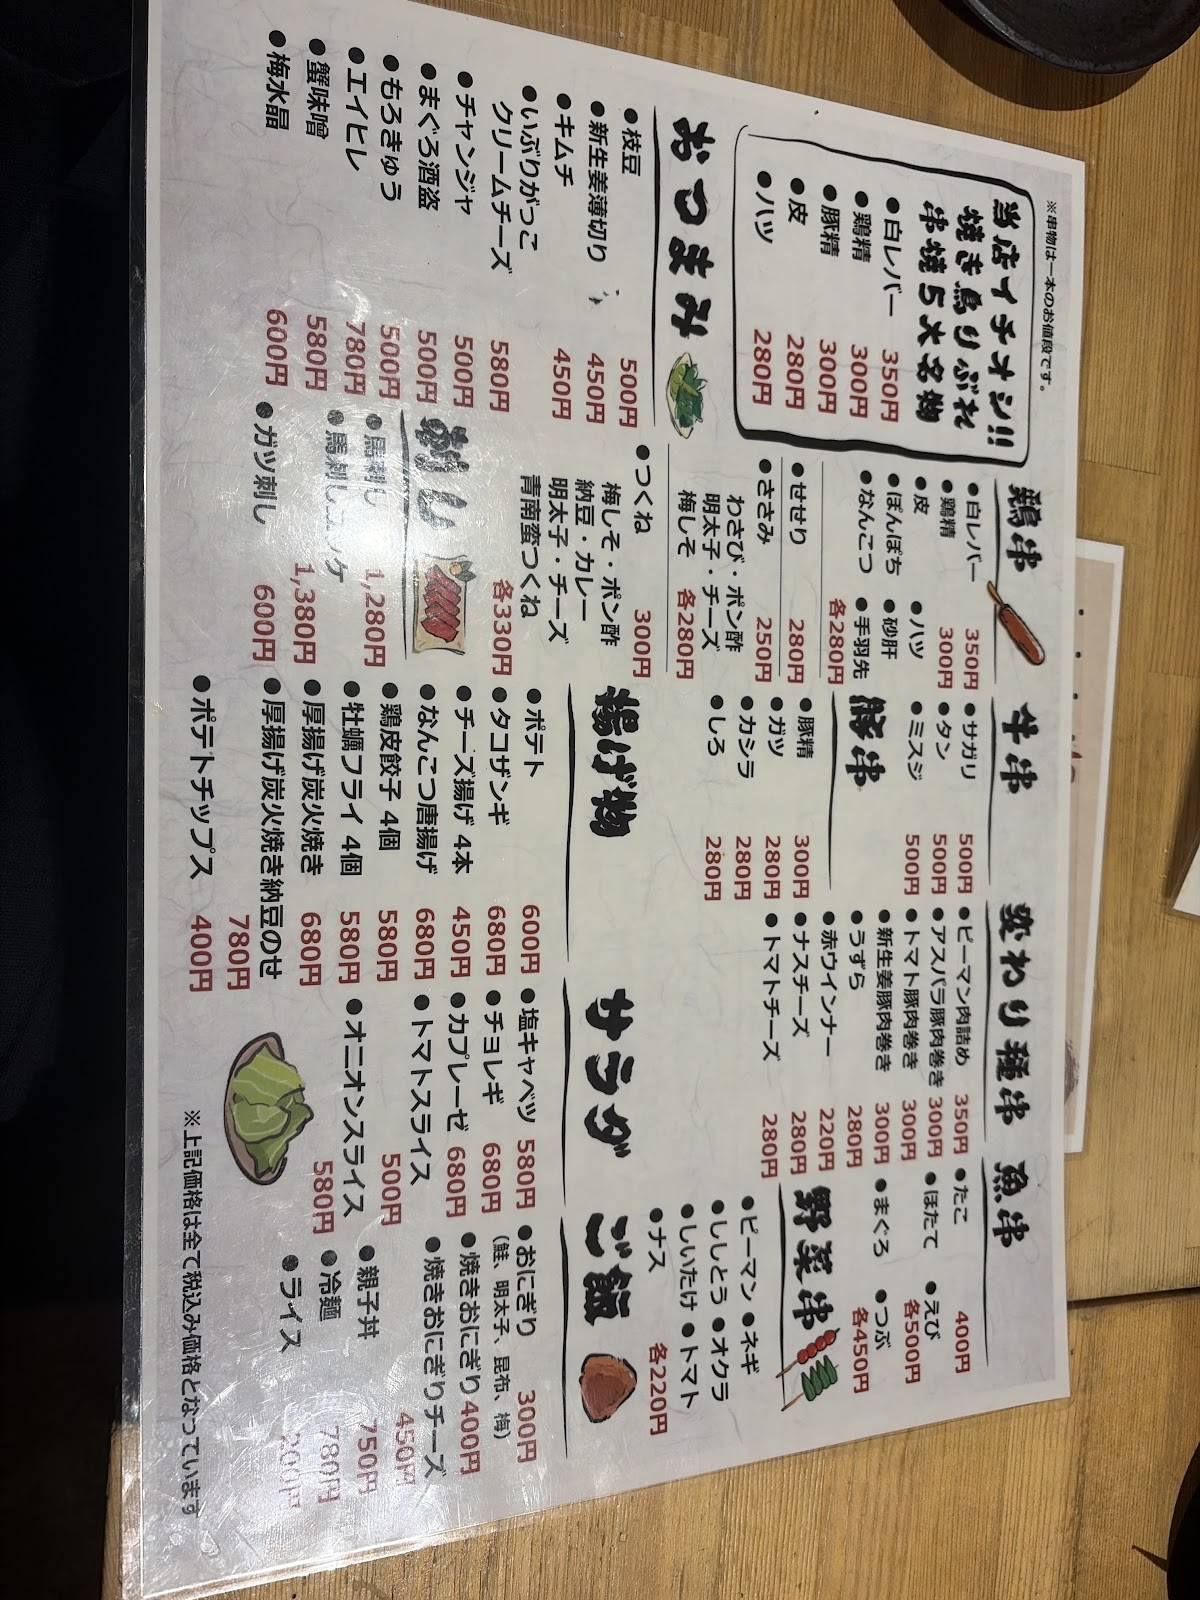 ※串物は一本のお値段です。
当店イチオシ!!
焼き鳥りぶれ
串焼5大名物
●白レバー 350円
●鶏精 300円
●豚精 300円
●皮 280円
●ハツ 280円
おつまみ
●枝豆 500円
●新生姜薄切り 450円
●キムチ 450円
●いぶりがっこ
クリームチーズ 580円
●チャンジャ 500円
●まぐろ酒盗 500円
●もろきゅう 500円
●エイヒレ 780円
●蟹味噌 580円
●梅水晶 600円
鶏串
●白レバー 350円
●鶏精 300円
●皮 ●ハツ
●ぼんぼち ●砂肝
●なんこつ ●手羽先
各280円
●せせり 280円
●ささみ 250円
わさび・ポン酢
明太子・チーズ
梅しそ 各280円
●つくね 300円
梅しそ・ポン酢
納豆・カレー
明太子・チーズ
青南蛮つくね
各330円
刺し
●馬刺し 1,280円
●馬刺しユッケ
1,380円
●ガツ刺し 600円
牛串
●サガリ 500円
●タン 500円
●ミスジ 500円
豚串
●豚精 300円
●ガツ 280円
●カシラ 280円
●しろ 280円
変わり種串
●ピーマン肉詰め 350円
●アスパラ豚肉巻き 300円
●トマト豚肉巻き 300円
●新生姜豚肉巻き 300円
●うずら 280円
●赤ウインナー 220円
●ナスチーズ 280円
●トマトチーズ 280円
魚串
●たこ 400円
●ほたて ●えび
各500円
●まぐろ ●つぶ
各450円
野菜串
●ピーマン ●ネギ
●ししとう ●オクラ
●しいたけ ●トマト
●ナス 各220円
揚げ物
●ポテト 600円
●タコザンギ 680円
●チーズ揚げ 4本 450円
●なんこつ唐揚げ 680円
●鶏皮餃子 4個 580円
●牡蠣フライ 4個 580円
●厚揚げ炭火焼き 680円
●厚揚げ炭火焼き納豆のせ
780円
●ポテトチップス 400円
サラダ
●塩キャベツ 580円
●チョレギ 680円
●カプレーゼ 680円
●トマトスライス
500円
●オニオンスライス
580円
ご飯
●おにぎり 300円
(鮭、明太子、昆布、梅)
●焼きおにぎり 400円
●焼きおにぎりチーズ
450円
●親子丼 750円
●冷麺 780円
●ライス 200円
※上記価格は全て税込み価格となっています